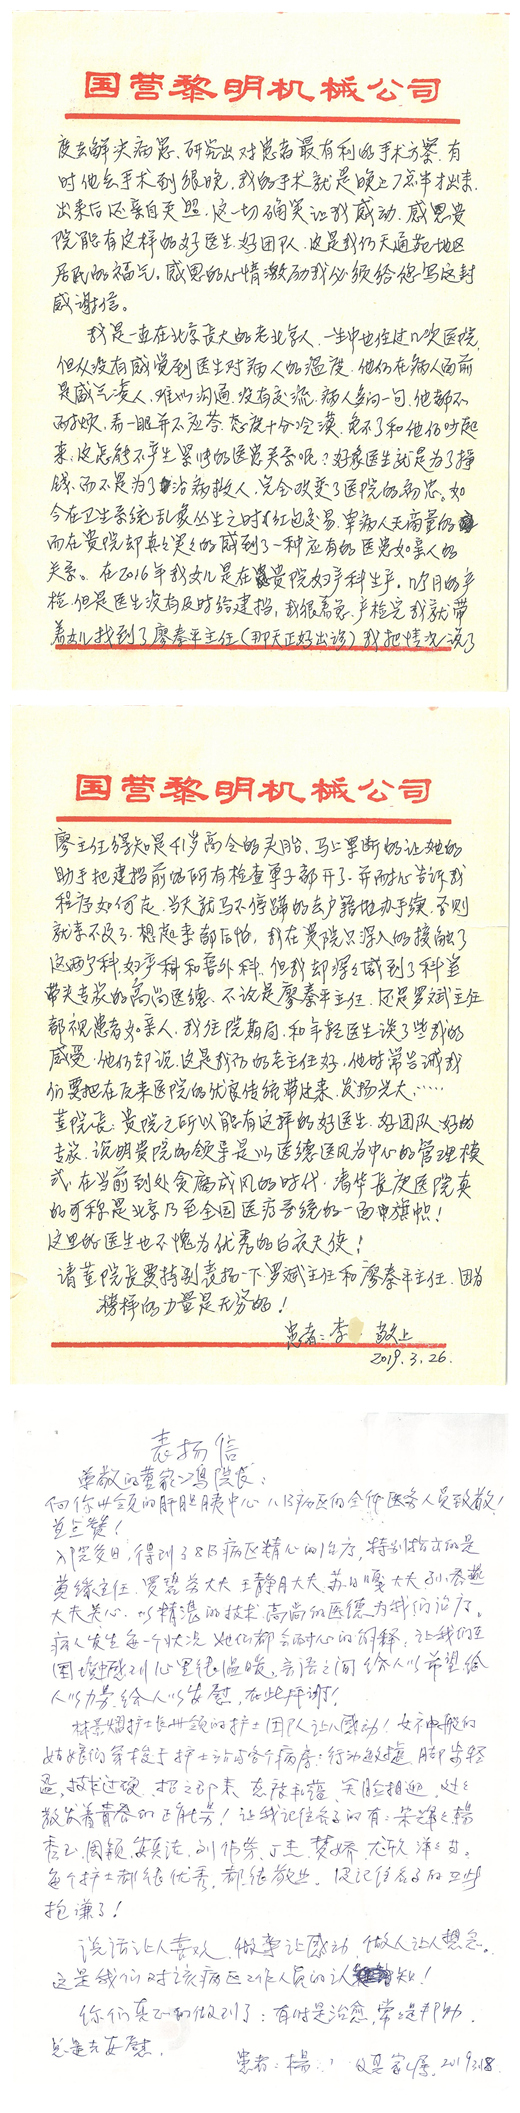 国营黎明机械公司
度去解决病患、研究出对患者最有利的手术方案、有
时他会手术到很晚，我的手术就是晚上7点半才出来，
出来后还亲自关照，这一切确实让我感动，感恩贵
院能有这样的好医生、好团队，这是我们天通苑地区
居民的福气。感恩的心情激励我必须给您写这封
感谢信。
我是一直在北京长大的老北京人，一生中也住过几次医院，
但从没有感觉到医生对病人的温度，他们在病人面前
是盛气凌人，难以沟通，没有交流，病人多问一句，他都不
耐烦，看一眼并不应答，态度十分冷漠，免不了和他们吵起
来，这怎能不产生紧张的医患关系呢？好象医生就是为了挣
钱，而不是为了治病救人，完全改变了医院的初忠。如
今在卫生系统乱象丛生之时红包交易，宰病人无商量的
而在贵院却真真实实的感到了一种应有的医患如亲人的
关系。在2016年我女儿是在贵院妇产科生产，几个月的产
检，但是医生没有及时给建挡，我很着急，产检完我就带
着女儿找到了廖秦平主任（那天正好出诊）我把情况说了
国营黎明机械公司
廖主任得知是41岁高令的头胎、马上果断的让她的
助手把建挡前的所有检查单子都开了，并耐心告诉我
程序如何走，当天就马不停蹄的去户籍地办手续，否则
就来不及了，想起来都后怕，我在贵院只深入的接触了
这两个科，妇产科和普外科，但我却深深感到了科室
带头专家的高尚医德，不论是廖秦平主任，还是罗斌主任
都视患者如亲人，我住院期间，和年轻医生谈了些我的
感受，他们却说，这是我们的老主任好，他时常告诫我
们要把在友来医院的优良传统带过来，发扬光大，……
董院长：贵院之所以能有这样的好医生、好团队、好的
专家，说明贵院的领导是以医德医风为中心的管理模
式，在当前到处贪腐成风的时代，清华长庚医院真
的可称是北京乃至全国医疗系统的一面中旗帜！
这里的医生也不愧为优秀的白衣天使！
请董院长要特别表扬一下罗斌主任和廖秦平主任，因为
榜样的力量是无穷的！
患者：李 敬上
2019.3.26.
表扬信
尊敬的董家鸿院长：
向你带领的肝胆胰中心 八B病区的全体医务人员致敬！
并点赞！
入院多日，得到了8B病区精心的治疗，特别指出的是
黄缘主任、罗碧芬大夫 王静月大夫、苏日嘎大夫
大夫关心，以精湛的技术、高尚的医德为我们治疗。
病人发生每一个状况 她们都会耐心的解释，让我们在
心里很温暖，言语之间 给人以希望 给
人以力量 给人以安慰，在此拜谢！
护士长带领的护士团队让人感动！女神般的
姑娘们穿梭于护士站与各个病房：行动敏捷，脚步轻
盈，技术过硬，招之即来 态度和蔼，笑脸相迎，处处
散发着青春的正能量！让我记住名字的有：
每个护士都很优秀，都很敬业，没记住名字的只能
抱谦了！
说话让人喜欢，做事让感动，做人让人想念。
这是我们对该病区工作人员的认知！
你们真正的做到了：有时是治愈，常常是帮助，
总是去安慰。
患者：楊 及其家属，2019.3.18.